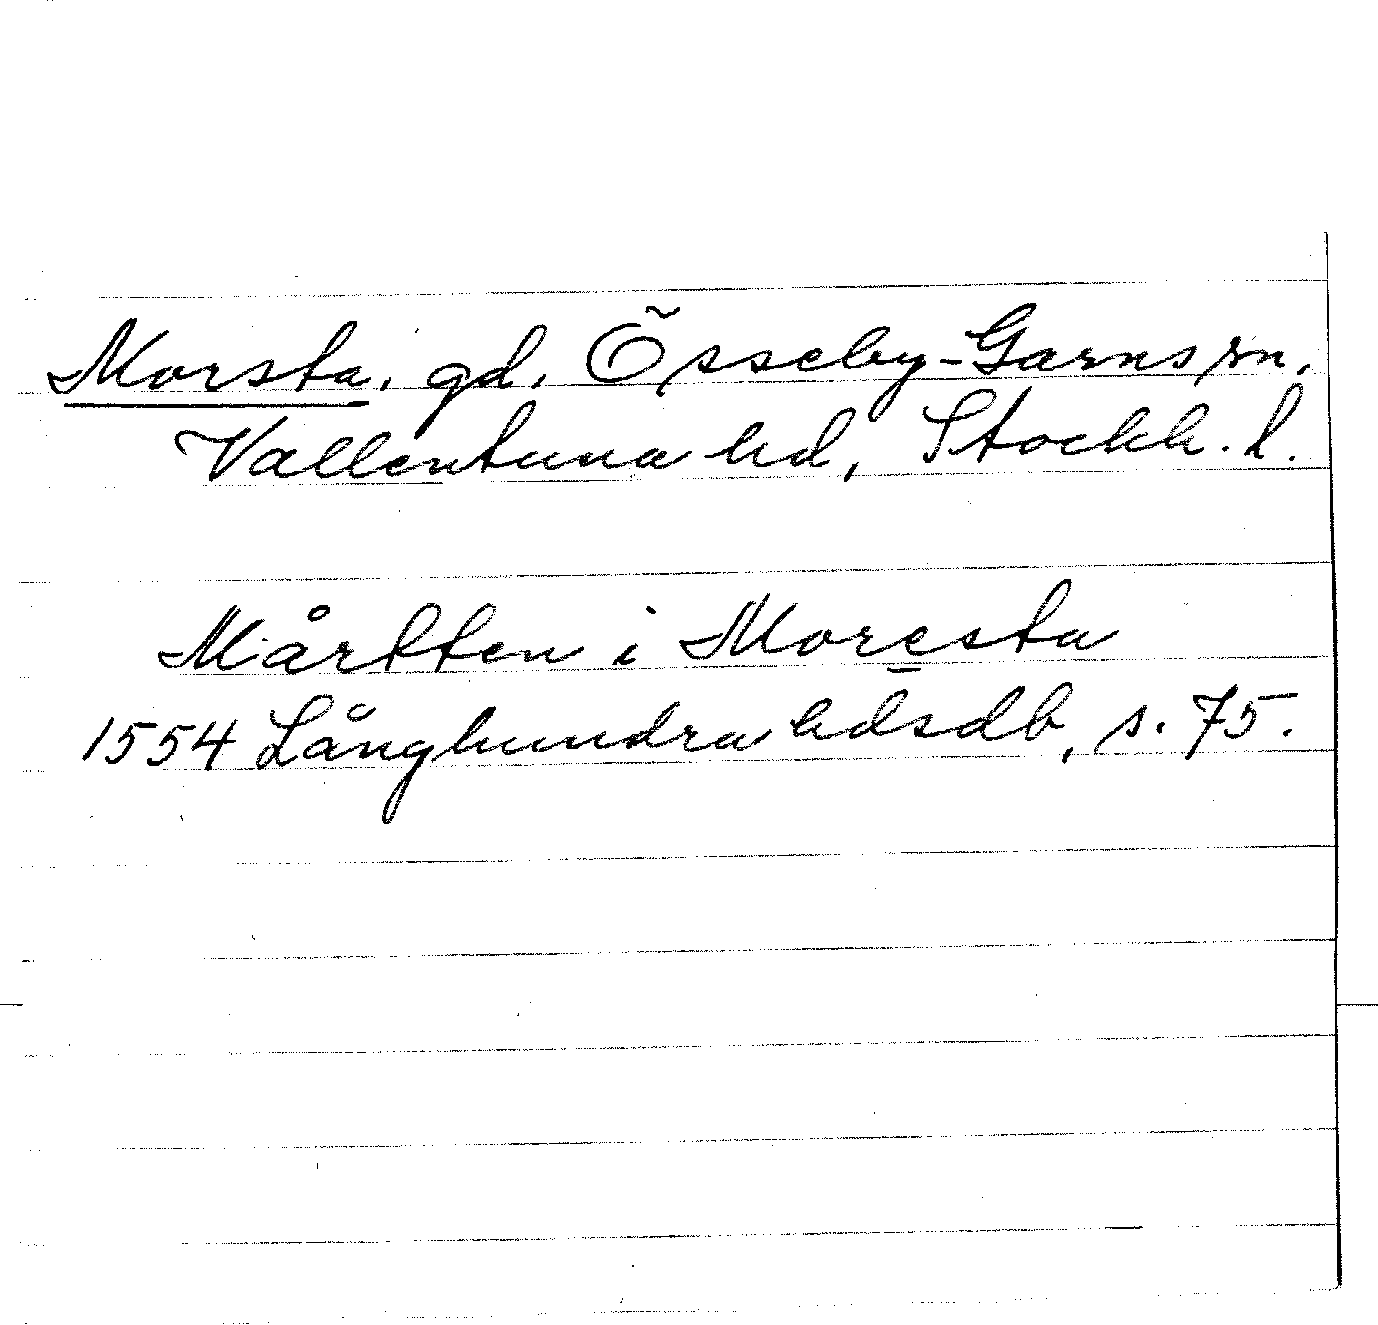 Morsta, gd, Össeby-Garns sn,
Vallentuna hd, Stockh. l.
Mårtten i Moresta
1554 Långhundra hdsdb, s. 75.